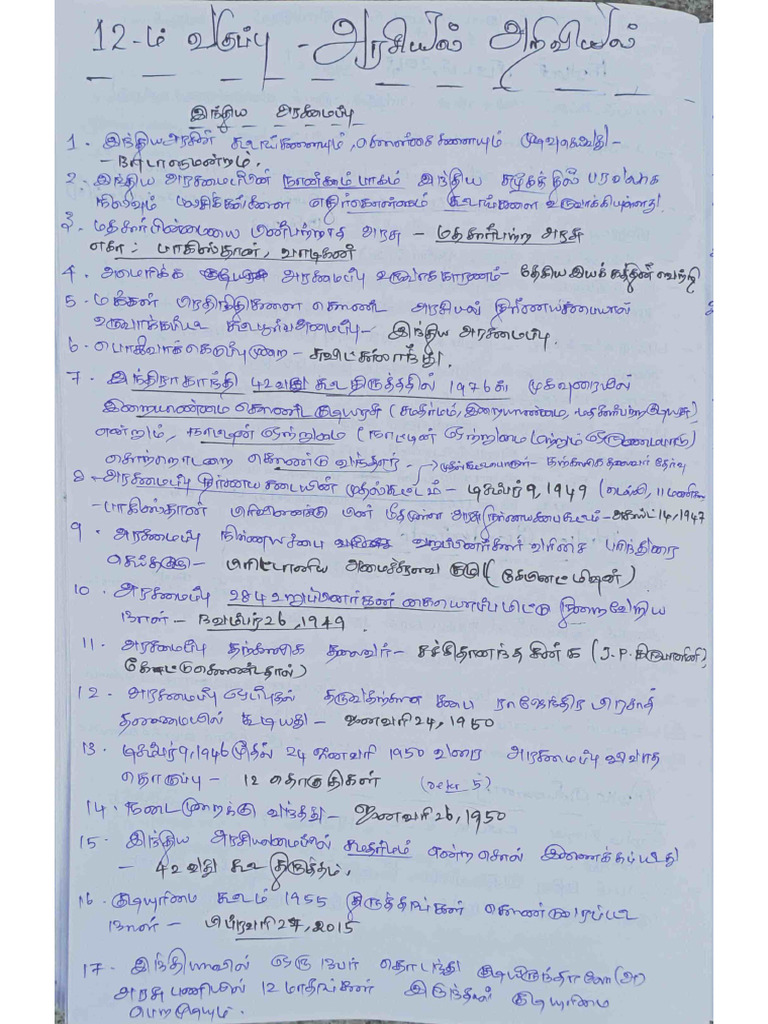 12-ம் வகுப்பு - அரசியல் அறிவியல்
இந்திய அரசமைப்பு
1. இந்திய அரசின் சட்டங்களையும், கொள்கைகளையும் முடிவுசெய்வது -
- நாடாளுமன்றம்.
2. இந்திய அரசமைப்பின் நான்காம் பாகம் இந்திய சமூகத்தில் பரவலாக
நிலவும் எதிர்கொள்ளும் சட்டங்களை உருவாக்கியுள்ளது
3. மதசார்பின்மையை பின்பற்றாத அரசு - மதசார்பற்ற அரசு
எகா: பாகிஸ்தான், வாடிகன்
4. அமெரிக்க அரசமைப்பு உருவாக காரணம் - தேசிய இயக்கத்தின் வெற்றி
5. மக்கள் பிரதிநிதிகளை கொண்ட அரசியல் நிர்ணயசபையால்
உருவாக்கப்பட்ட சட்டபூர்வ அமைப்பு - இந்திய அரசமைப்பு.
6. பொதுவாக்கெடுப்புமுறை - சுவிட்சலாந்து.
7. இந்திராகாந்தி 42வது சட்டதிருத்தத்தில் 1976ல் முகவுரையில்
இறையாண்மை கொண்ட குடியரசு (சமதர்மம், இறையாண்மை, மதசார்பற்ற குடியரசு)
என்றும், நாட்டின் ஒற்றுமை (நாட்டின் ஒற்றுமை மற்றும் ஒருமைபாடு)
சொற்றொடரை கொண்டு வந்தார். தற்காலிக தலைவர் தேர்வு
8. அரசமைப்பு நிர்ணய சபையின் முதல்கூட்டம் - டிசம்பர் 9, 1949 (டெல்லி, 11 மணிக்கு
- பாகிஸ்தான் பிரிவினைக்கு பின் மீதமுள்ள அரசு நிர்ணயசபைகூட்டம் - ஆகஸ்ட் 14, 1947
9. அரசமைப்பு நிர்ணயசபை உறுப்பினர்கள் வரிசை பரிந்துரை
செய்தது - பிரிட்டானிய அமைச்சரவை குழு (கேபினட் மிஷன்)
10. அரசமைப்பு 284 உறுப்பினர்கள் கையெழுப்பமிட்டு நிறைவேறிய
நாள் - நவம்பர் 26, 1949.
11. அரசமைப்பு தற்காலிக தலைவர் - சச்சிதானந்த சின்கா (J.P. கிருபாளினி,
கேட்டுகொண்டதால்)
12. அரசமைப்பு ஒப்புதல் தருவதற்கான சபை ராஜேந்திர பிரசாத்
தலைமையில் கூடியது - ஜனவரி 24, 1950
13. டிசம்பர் 9, 1946 முதல் 24 ஜனவரி 1950 வரை அரசமைப்பு விவாத
தொகுப்பு - 12 தொகுதிகள் (refer 5)
14. நடைமுறைக்கு வந்தது - ஜனவரி 26, 1950
15. இந்திய அரசியலமைப்பில் சமதர்மம் என்ற சொல் இணைக்கப்பட்டது
- 42வது சட்ட திருத்தம்.
16. குடியுரிமை சட்டம் 1955 திருத்தங்கள் கொண்டுவரப்பட்ட
நாள் - பிப்ரவரி 27, 2015
17. இந்தியாவில் ஒரு நபர் தொடர்ந்து குடியிருந்தாலோ (அ)
அரசு பணியில் 12 மாதங்கள் இருந்தால் குடியுரிமை
பெறமுடியும்.